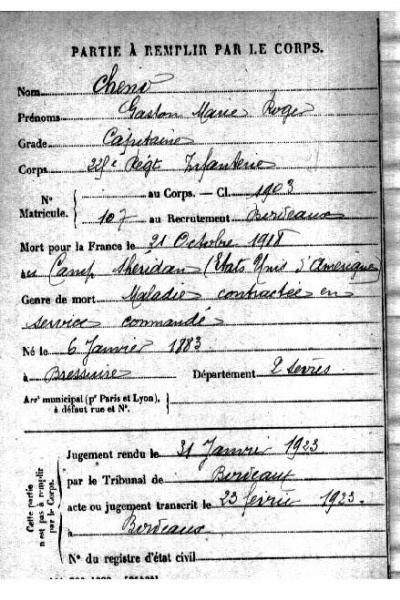 PARTIE À REMPLIR PAR LE CORPS.
Nom
Prénoms Gaston Marie Roger
Grade Capitaine
Corps 228e Régt Infanterie
N° Matricule.
au Corps. — Cl. 1903
107 au Recrutement Bordeaux
Mort pour la France le 21 Octobre 1918
au Camp Shéridan (Etats Unis d'Amérique)
Genre de mort Maladie contractée en
service commandé
Né le 6 Janvier 1883
à Bressuire Département 2 Sèvres
Arrt municipal (pr Paris et Lyon),
à défaut rue et N°.
Cette partie
n'est pas à remplir
par le Corps.
Jugement rendu le 31 Janvier 1923
par le Tribunal de Bordeaux
acte ou jugement transcrit le 23 février 1923.
à Bordeaux
N° du registre d'état civil